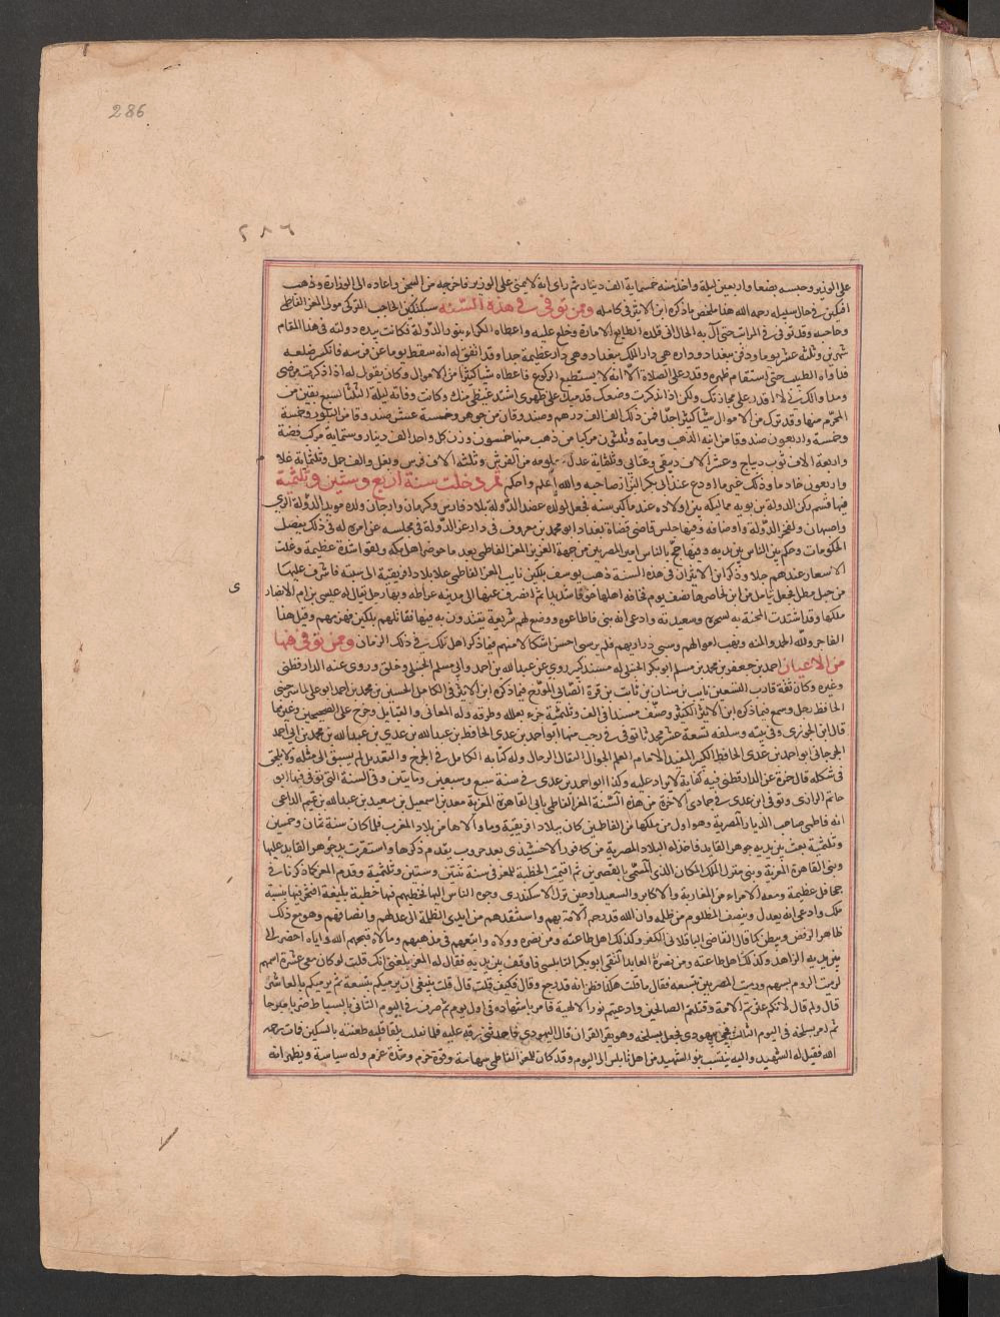 286
٢٨٦
على الوزير وحبسه بضعا واربعين ليلة واخذ منه خمسماية الف دينار ثم راى انه لا يمشى على الوزير فاخرجه من السجن واعاده الى الوزارة وذهب
افتكين في حال سبيله رحمه الله هذا ملخص ما ذكره ابن الاثير في كامله وممن توفى في هذه السنه سبكتكين الحاجب التركى مولى المعز
وحاجبه وقد توفى في المراتب حتى آل به الحال الى ان قلده الطايع الامارة وخلع عليه واعطاه اللواء بنور الدولة فكانت مدة دولته في هذا المقام
شهرين وثلثة عشر يوما ودفن ببغداد وداره هي دار الملك ببغداد وهي دار عظيمة جدا وقد اتفق له انه سقط يوما عن فرسه فانكسر ضلعه
فداواه الطبيب حتى استقام ظهره وقدر على الصلاة الا انه لا يستطيع الركوع فاعطاه شيا كثيرا من الاموال وكان يقول له اذا ذكرت مرضى
ومداواتك لى لا اقدر على مجازاتك ولكن اذا تذكرت وضعك قدميك على ظهرى اشتد غيظى منك وكانت وفاته ليلة الثلثا لسبع بقين من
المحرم منها وقد ترك من الاموال شيا كثيرا جدا فمن ذلك الف الف درهم وصندوقان من جوهر وخمسة عشر صندوقا من البلور وخمسة
وخمسة واربعون صندوقا من انه الذهب وماية وثلثون مركبا من ذهب منها خمسون وزن كل واحد الف دينار وستماية مركب فضة
واربعة الاف ثوب ديباج وعشرة الاف ديبقى وعتابى وثلثماية عدل من الفرش وثلثة الاف فرس وبغل والف جمل وثلثماية غلام
واربعون خادما وذلك غير ما اودع عند ابى بكر البزاز صاحبه والله اعلم واحكم ثم دخلت سنة اربع وستين وثلثماية
فيها قسم ركن الدولة بن بويه مماليكه بين اولاده عند ما كبر سنه فجعل لولده عضد الدولة بلاد فارس وكرمان وارجان ولده مويد الدولة الرى
واصبهان ولفخر الدولة واضافه وفيها جلس قاضى قضاة بغداد ابو محمد بن معروف في دار عز الدولة في مجلسه عن امره له في ذلك بفصل
الحكومات وحكم بين الناس بين يديه وفيها حج بالناس امير المصريين من جهة العزيز المعز الفاطمى بعد ما حوصر اهل مكه ولقوا شدة عظيمة وغلت
الاسعار عندهم جدا وذكر ابن الاثير ان في هذه السنة ذهب يوسف بلكين نايب المعز الفاطمى على بلاد افريقية الى سبتة فاشرف عليها
من جبل مطل فجعل يتامل من اين يحاصرها نصف يوم فخافه اهلها خوفا شديدا ثم انصرف عنها الى مدينة وبها رجل يقال له عيسى بن ام الانصار
ملكها وقد اشتدت المحنة به لسحره وشعبذته وادعى انه نبى فاطاعوه ووضع لهم شريعة يقتدون به فيها فقاتلهم بلكين فهزمهم وقتل هذا
الفاجر ولله الحمد والمنه ونهب اموالهم وسبى ذراريهم فلم ير سبى احسن اشكالا منهم فيما ذكر اهل تلك في ذلك الزمان وممن توفى فيها
من الاعيان احمد بن جعفر بن محمد بن مسلم ابو بكر الختلى له مسند كبير روى عن عبد الله بن احمد وابى مسلم وخلق وروى عنه الدارقطنى
وغيره وكان ثقة قارب التسعين ثابت بن سنان بن ثابت بن قرة الصابى المورخ فيما ذكره ابن الاثير في الكامل الحسين بن محمد بن احمد ابو على الماسرجسى
الحافظ رحل وسمع فيما ذكره ابن الاثير الكثير وصنف مسندا في الف وثلثماية جزء بعلله وطرقه وله المغازى والقبايل وخرج على الصحيحين وغيرهما
قال ابن الجوزى وفى بيته وسلفه تسعة عشر محدثا توفى في رجب منها ابو احمد بن عدى الحافظ بن عبد الله بن عدى بن عبد الله بن محمد بن ابى احمد
الجرجانى ابو احمد بن عدى الحافظ الكبير المفيد الامام العلم الجوال النقال الرحال وله كتابه الكامل في الجرح والتعديل لم يسبق الى مثله ولا يلحق
في شكله قال حمزة عن الدارقطنى فيه كفاية لا يزاد عليه وكذا ابو احمد بن عدى في سنة سبع وسبعين ومايتين وفى السنة التى توفى فيها ابو
حاتم الرازى وتوفى ابن عدى في جمادى الاخرة من هذه السنة المعز الفاطمى بانى القاهرة المعزية معد بن اسمعيل بن سعيد بن عبد الله بن تميم الداعى
انه فاطمى صاحب الديار المصرية وهو اول من ملكها من الفاطميين كان ببلاد افريقية وما والاها من بلاد المغرب فلما كان سنة ثمان وخمسين
وثلثمية بعث بين يديه جوهر القايد فاخذ له البلاد المصرية من كافور الاخشيدى بعد حروب يقدم ذكرها واستقرت يد جوهر القايد عليها
وبنى القاهرة المعزية وبنى منزل الملك المكان الذى المسمى بالقصرين ثم اقيمت الخطبة للمعز في سنة ثنتين وستين وثلثمية وقدم المعز كما ذكرنا في
جحافل عظيمة ومعه الامراء من المغاربة والاكابر وحين نزل الاسكندرى وجوه الناس اليها فخطبهم فيها خطبة بليغة
ملك وادعى انه يعدل وينصف المظلوم من ظالمه وان الله قد رحم الامة بهم واستنقذهم من ايدى الظلمة الى عدلهم وانصافهم وهو مع ذلك
ظاهره الرفض ويبطن كما قال القاضى الباقلانى الكفر وكذلك اهل طاعته ومن نصره ووالاه واتبعهم في مذهبهم وما لاه قبحهم الله واياه احضر الى
بين يديه الزاهد العابد التقى ابو بكر النابلسى فاوقف بين يديه فقال له المعز بلغنى انك قلت لو كان معى عشرة اسهم
لرميت الروم بسهم ورميت المصريين بتسعه فقال ما قلت هكذا فظن انه قد رجع وقال فكيف قلت قال قلت ينبغى ان يرميكم بتسعة ثم يرميكم بالعاشر
قال ولم قال لانكم غيرتم الامة وقتلتم الصالحين وادعيتم نور الالهية فامر باشهاره في اول يوم ثم ضرب في اليوم الثانى بالسياط ضربا مبرحا
ثم امر بسلخه في اليوم الثالث فجئ بيهودى فجعل يسلخه وهو يقرا القران قال اليهودى فاخذتنى رقة عليه فلما بلغت تلقا قلبه طعنته بالسكين فمات رحمه
الله فقيل له الشهيد واليه ينتسب بنو الشهيد من اهل نابلس الى اليوم وقد كان للمعز الفاطمى شهامة وقوة حزم وشدة عزم وله سياسة ويظهر انه